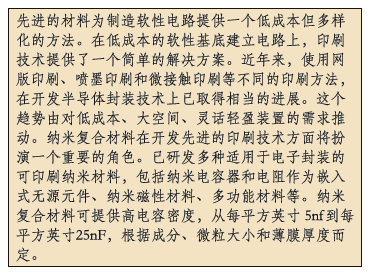 先进的材料为制造软性电路提供一个低成本但多样
化的方法。在低成本的软性基底建立电路上，印刷
技术提供了一个简单的解决方案。近年来，使用网
版印刷、喷墨印刷和微接触印刷等不同的印刷方法，
在开发半导体封装技术上已取得相当的进展。这个
趋势由对低成本、大空间、灵活轻盈装置的需求推
动。纳米复合材料在开发先进的印刷技术方面将扮
演一个重要的角色。已研发多种适用于电子封装的
可印刷纳米材料，包括纳米电容器和电阻作为嵌入
式无源元件、纳米磁性材料、多功能材料等。纳米
复合材料可提供高电容密度，从每平方英寸 5nf到每
平方英寸25nF，根据成分、微粒大小和薄膜厚度而
定。